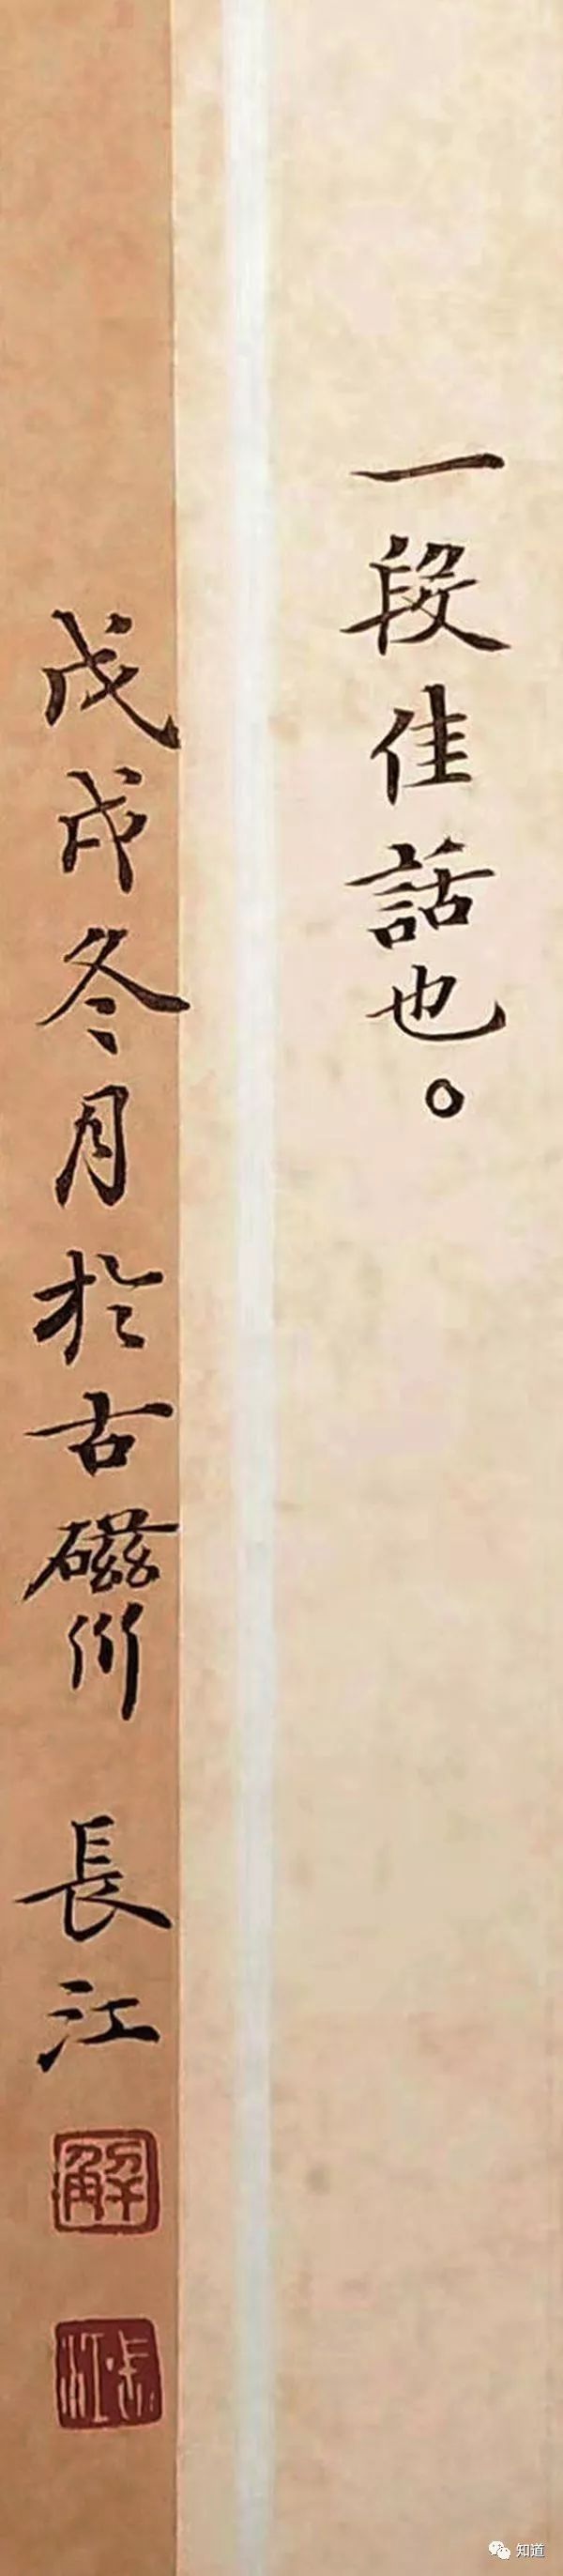 一段佳話也。
戊戌冬月於古磁州
長江
解
長江
知道